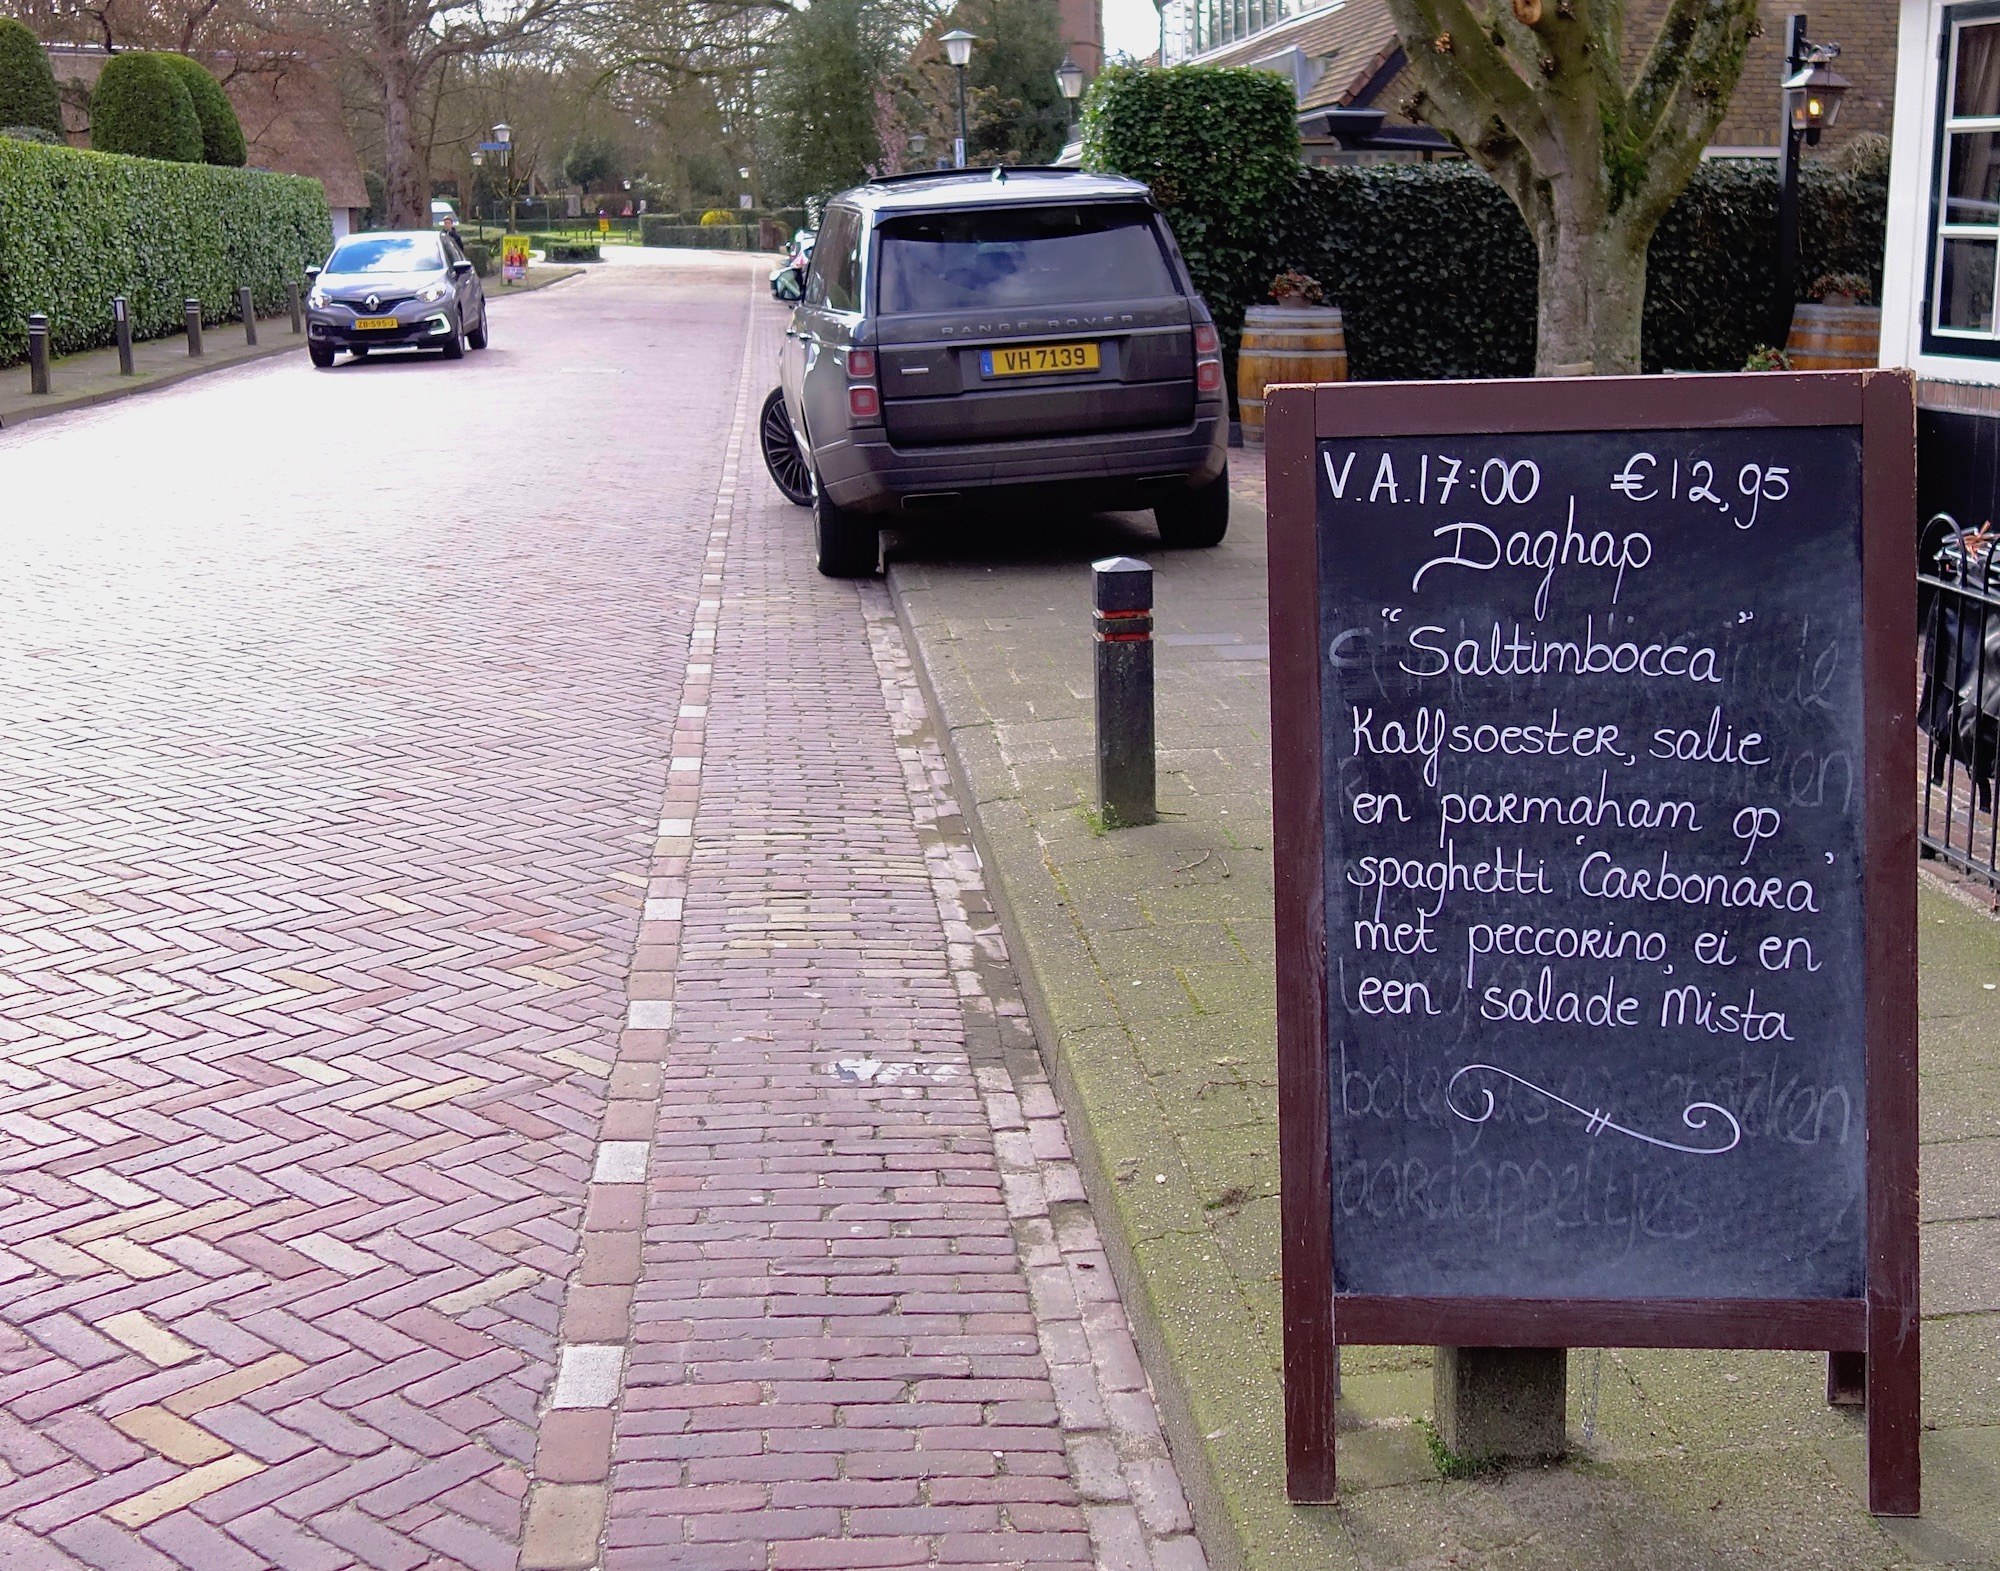 V.A. 17:00 €12,95
Daghap
"Saltimbocca"
Kalfsoester, salie
en parmaham op
spaghetti 'Carbonara'
met peccorino, ei en
een salade Mista
aardappeltjes
RANGE ROVER
L
VH 7139
ZB-595-J